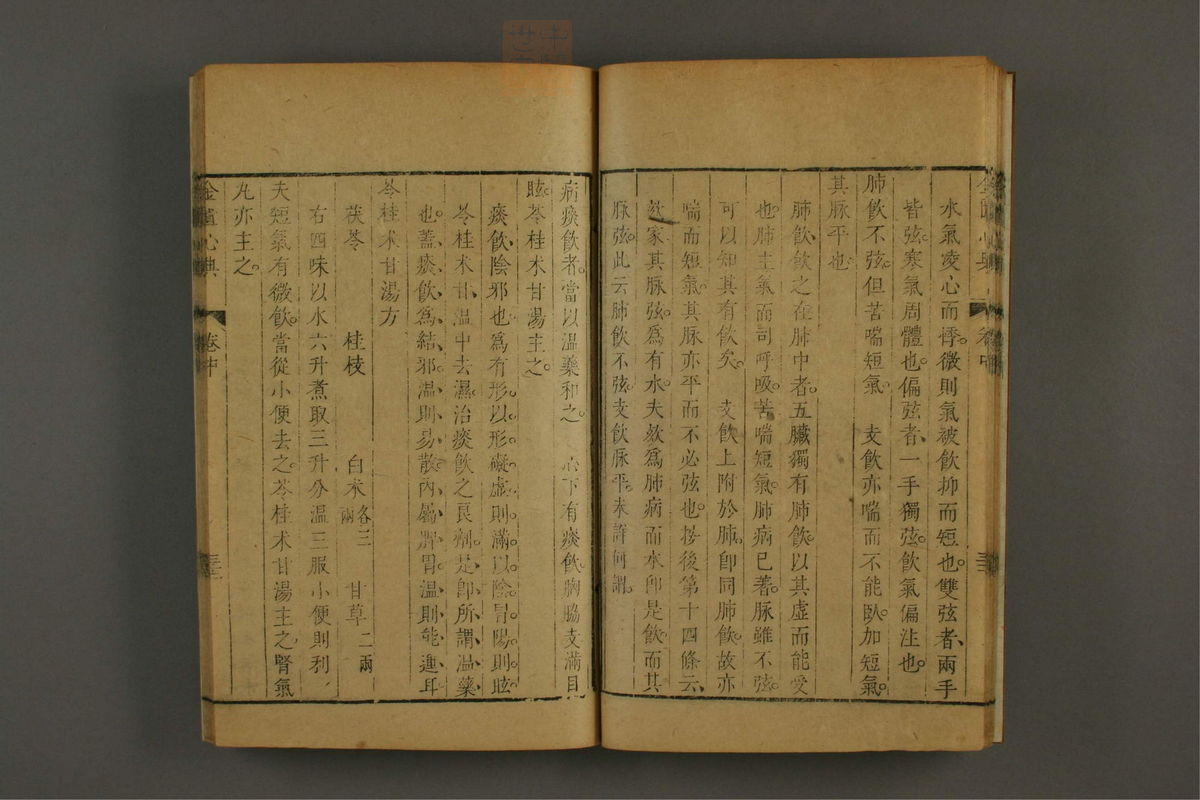 水氣凌心而悸。微則氣被飲抑而短也。雙弦者、兩手
皆弦。寒氣周體也。偏弦者、一手獨弦。飲氣偏注也。
肺飲不弦。但苦喘短氣。　支飲亦喘而不能臥。加短氣。
其脉平也。
肺飲、飲之在肺中者。五臟獨有肺飲。以其虛而能受
也。肺主氣而司呼吸。苦喘短氣。肺病已著。脉雖不弦。
可以知其有飲矣。　支飲上附於肺。卽同肺飲。故亦
喘而短氣。其脉亦平而不必弦也。按後第十四條云、
欬家其脉弦。爲有水。夫欬爲肺病。而水卽是飲。而其
脉弦。此云肺飲不弦。支飲脉平。未詳何謂。
病痰飲者。當以溫藥和之。　心下有痰飲。胸脇支滿。目
眩。苓桂朮甘湯主之。
痰飲、陰邪也。爲有形。以形礙虛則滿。以陰冒陽則眩。
苓桂朮甘、溫中去濕。治痰飲之良劑。是卽所謂溫藥
也。蓋痰飲爲結邪。溫則易散。內屬脾胃。溫則能運耳。
苓桂朮甘湯方
茯苓　桂枝　白朮各三兩　甘草二兩
右四味以水六升煮取三升分溫三服小便則利、
夫短氣有微飲。當從小便去之。苓桂朮甘湯主之。腎氣
丸亦主之。
金匱心典　卷中